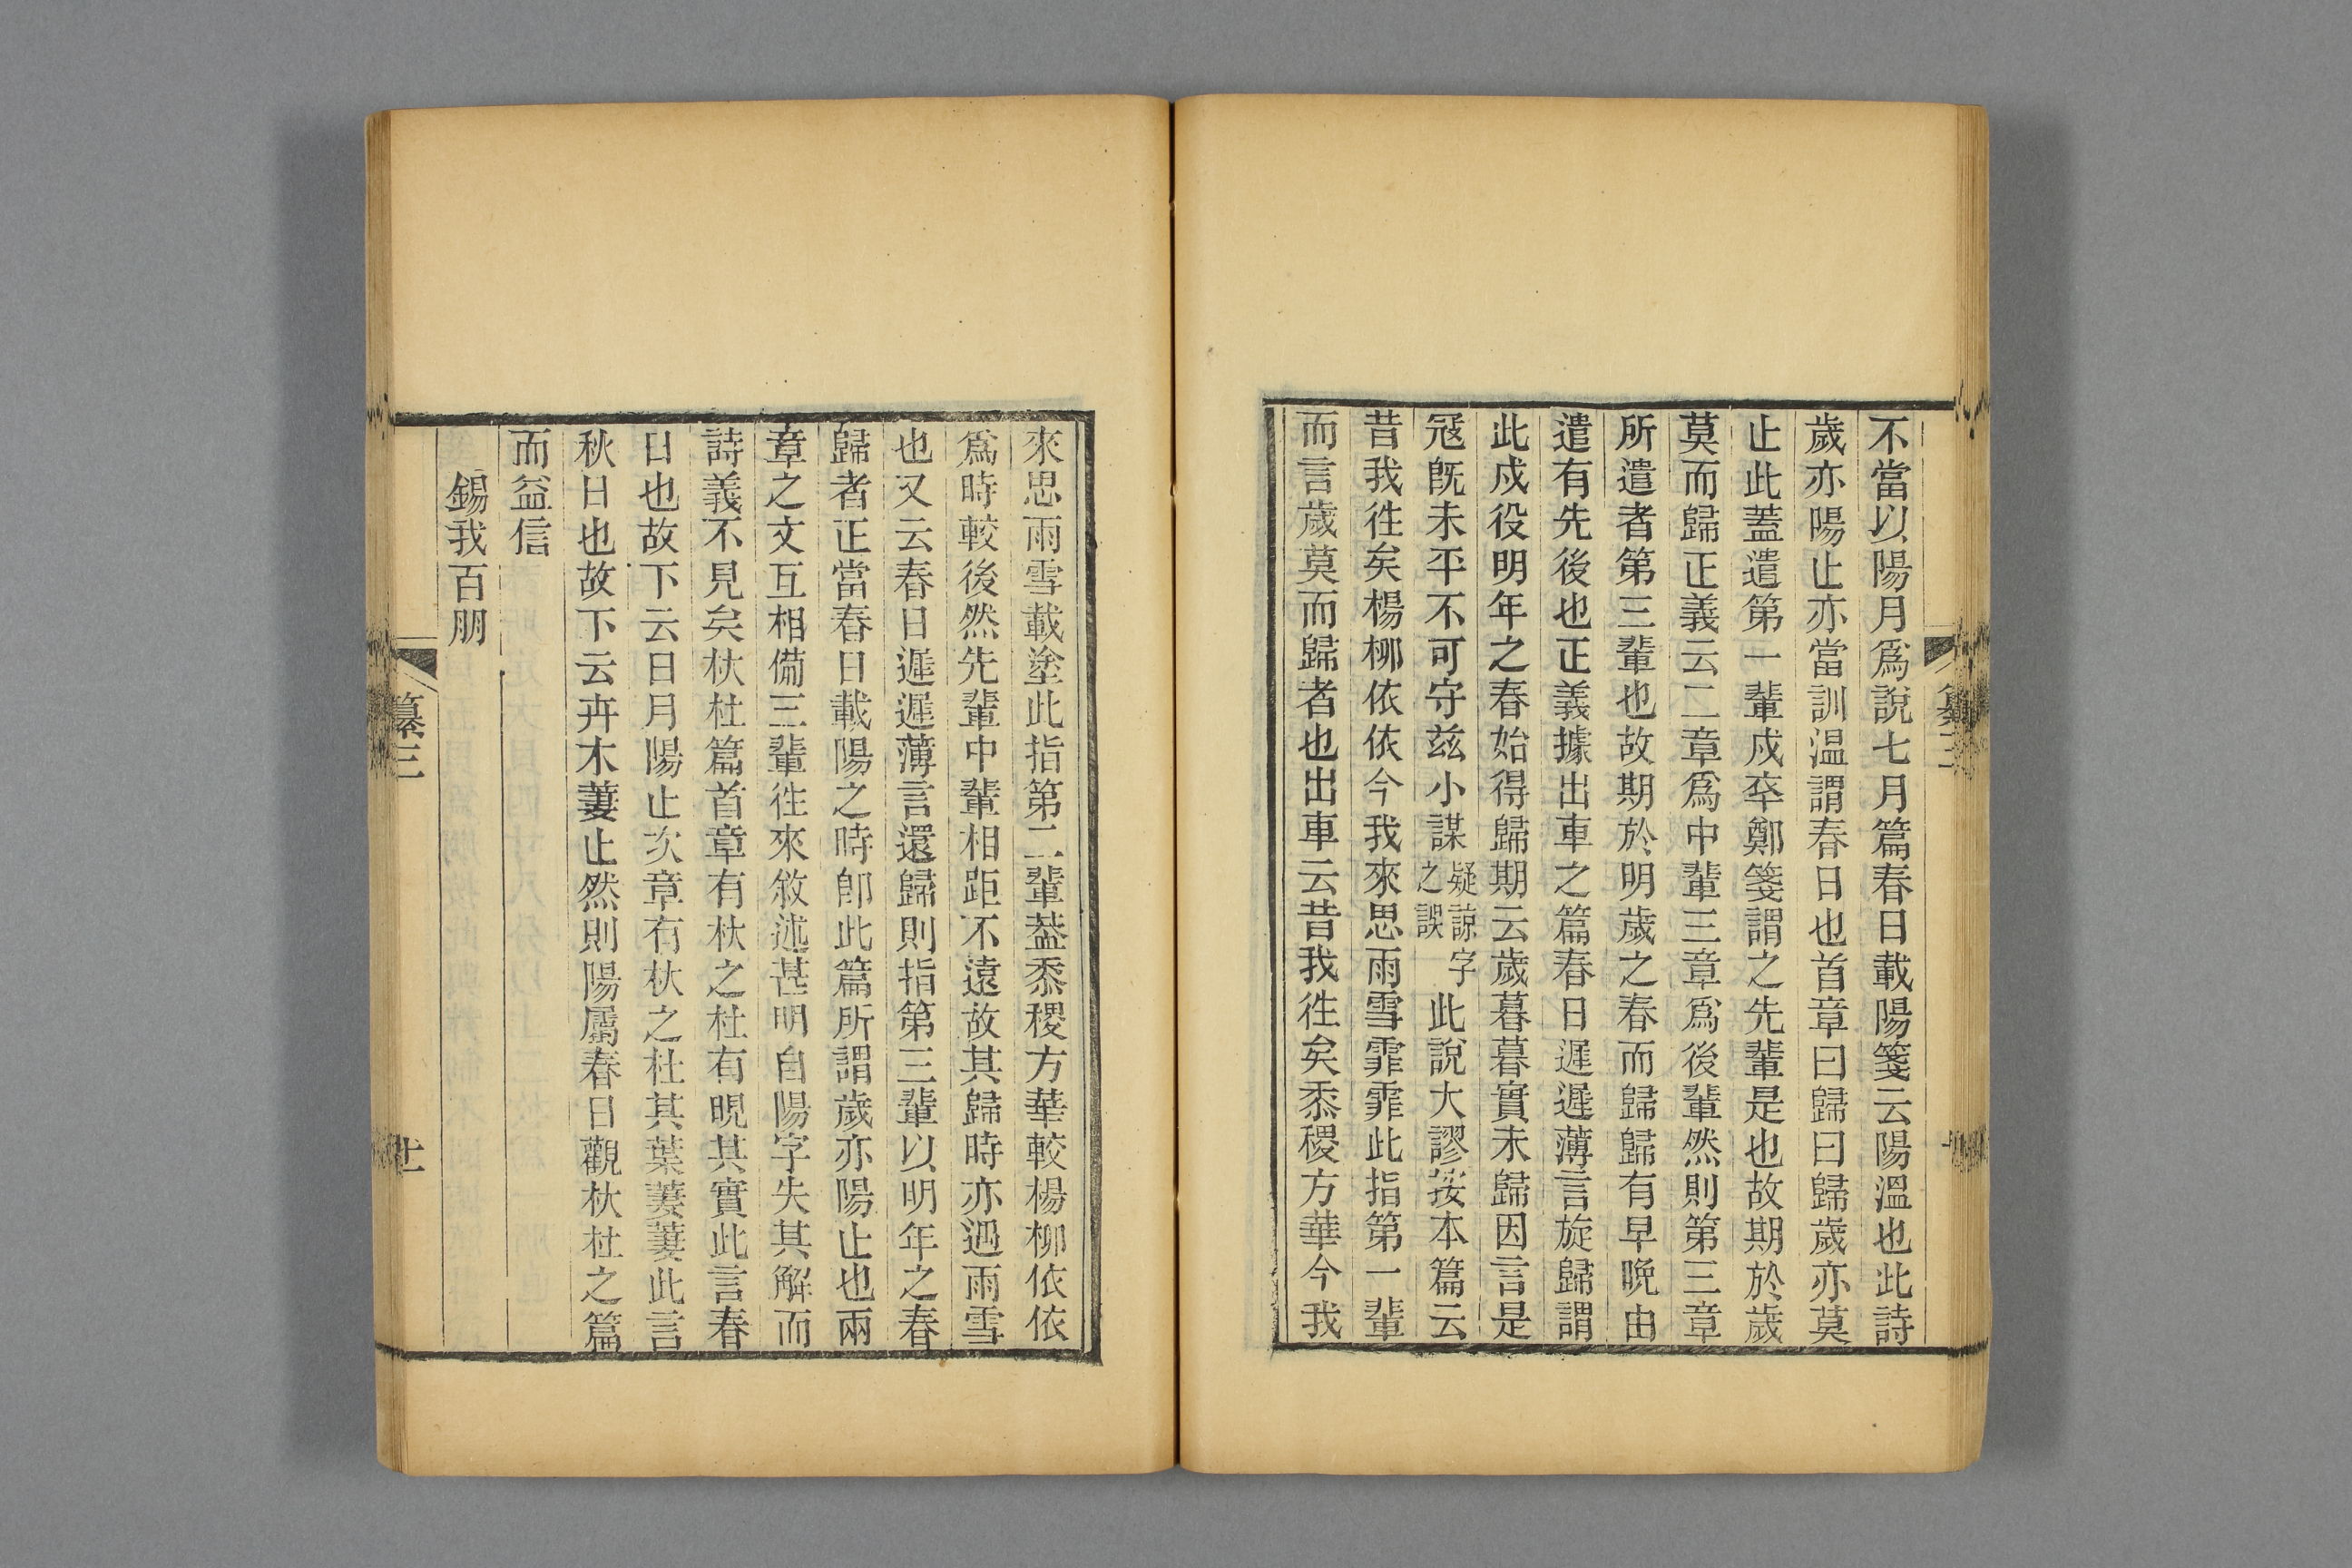 不當以陽月爲說七月篇春日載陽箋云陽溫也此詩
歲亦陽止亦當訓温謂春日也首章曰歸曰歸歲亦莫
止此蓋遣第一輩戍卒鄭箋謂之先輩是也故期於歲
莫而歸正義云二章爲中輩三章爲後輩然則第三章
所遣者第三輩也故期於明歲之春而歸歸有早晚由
遣有先後也正義據出車之篇春日遲遲薄言旋歸謂
此戍役明年之春始得歸期云歲暮暮實未歸因言是
冦旣未平不可守玆小謀疑諒字之誤此說大謬按本篇云
昔我徃矣楊栁依依今我來思雨雪霏霏此指第一輩
而言歲莫而歸者也出車云昔我徃矣黍稷方華今我
來思雨雪載塗此指第二輩葢黍稷方華較楊栁依依
爲時較後然先輩中輩相距不遠故其歸時亦遇雨雪
也又云春日遲遲薄言還歸則指第三輩以明年之春
歸者正當春日載陽之時卽此篇所謂歲亦陽止也兩
章之文互相備三輩徃來敘述甚明自陽字失其解而
詩義不見矣杕杜篇首章有杕之杜有睍其實此言春
日也故下云日月陽止次章有杕之杜其葉萋萋此言
秋日也故下云卉木萋止然則陽屬春日觀杕杜之篇
而益信
錫我百朋
纂三
十一